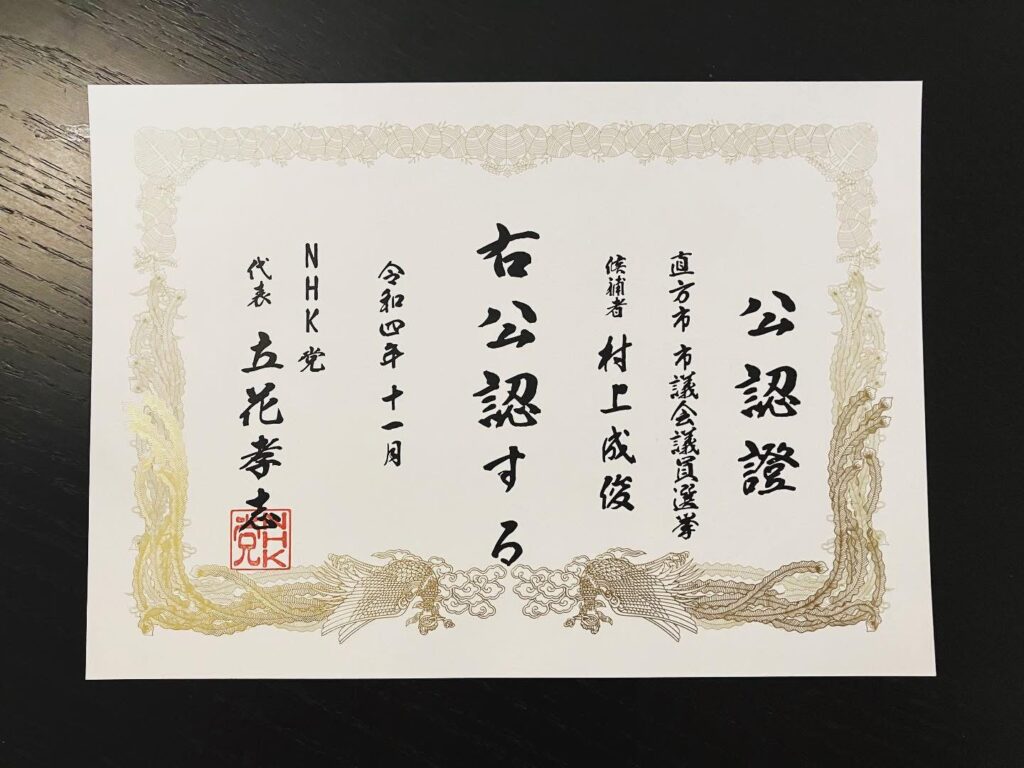 公認證
直方市 市議会議員選挙
候補者 村上成俊
右公認する
令和四年十一月
NHK党
代表 立花孝志
NHK党